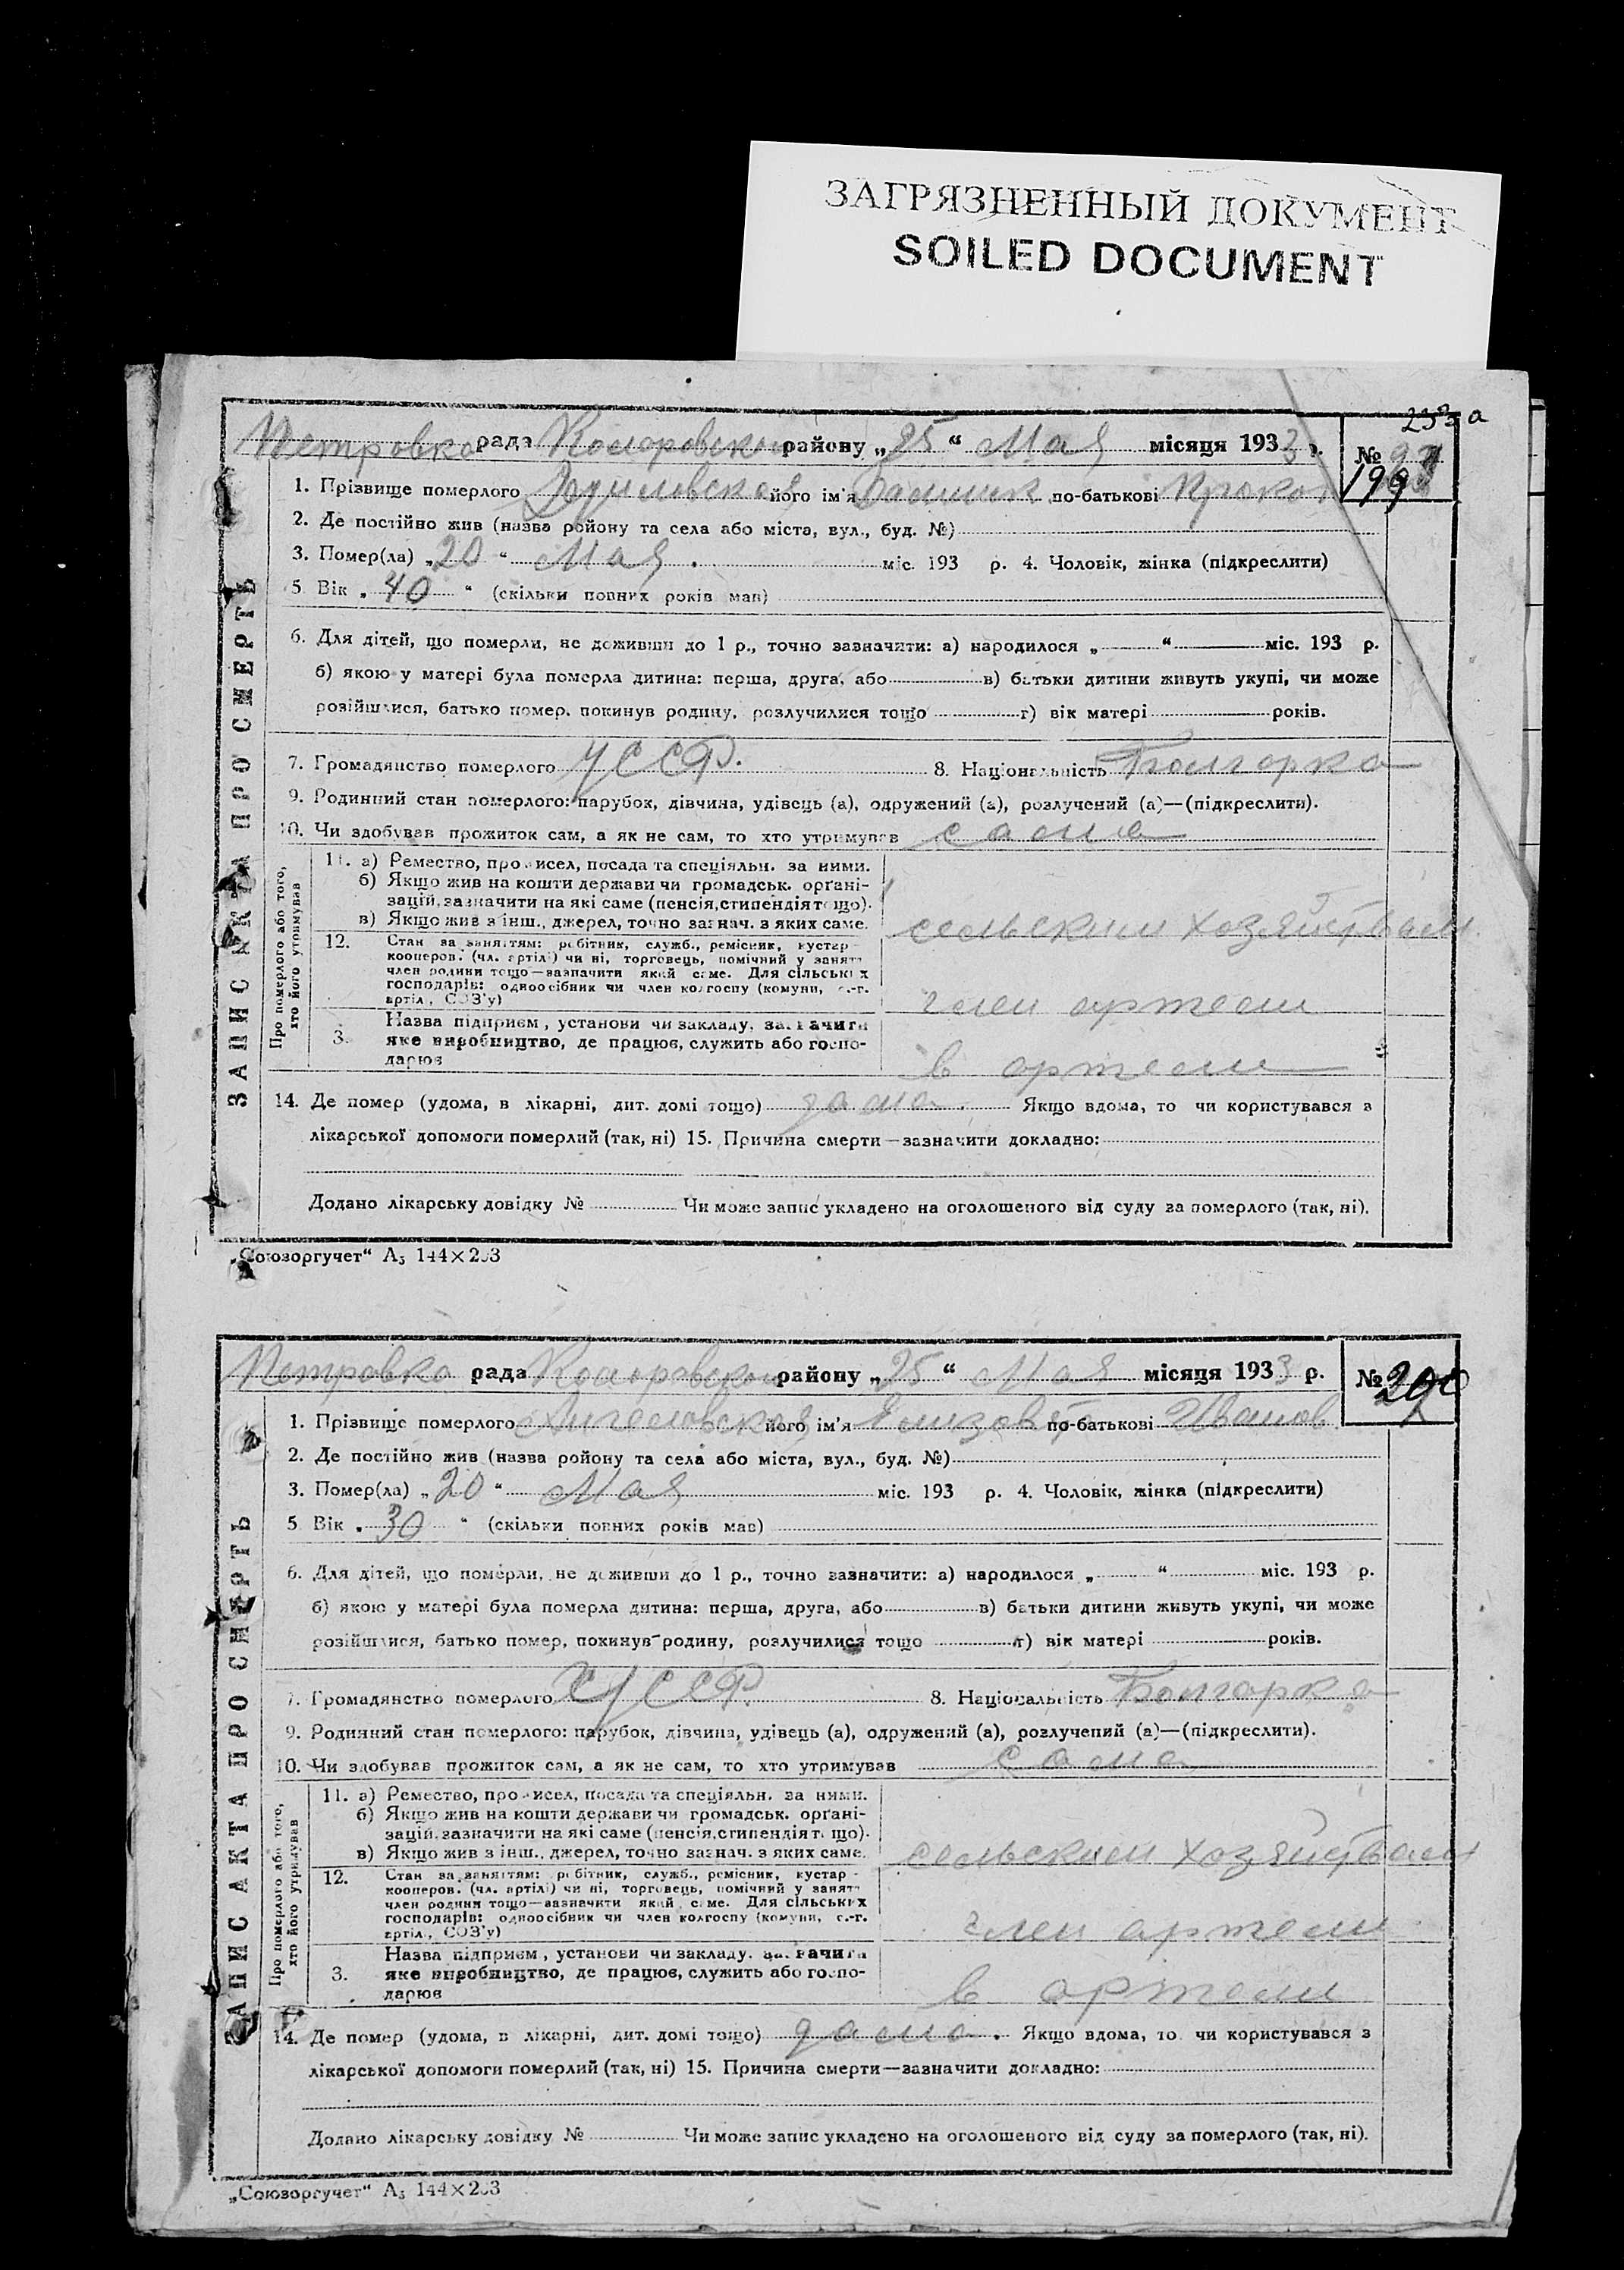 ЗАГРЯЗНЕННЫЙ ДОКУМЕНТ
SOILED DOCUMENT
233а
Петровка рада району „25“ Мая місяця 1933 р. №
199
1. Прізвище померлого його ім'я по-батькові
2. Де постійно жив (назва ройону та села або міста, вул., буд. №)
3. Помер(ла) „20“ Мая міс. 193 р. 4. Чоловік, жінка (підкреслити)
5 Вік 40 “ (скільки повних років мав)
6. Для дітей, що померли, не доживши до 1 р., точно зазначити: а) народилося „ “ міс. 193 р.
б) якою у матері була померла дитина: перша, друга, або в) батьки дитини живуть укупі, чи може
розійшлися, батько помер, покинув родину, розлучилися тощо г) вік матері років.
7. Громадянство померлого УССР. 8. Національність Болгарка
9. Родинний стан померлого: парубок, дівчина, удівець (а), одружений (а), розлучений (а)—(підкреслити).
10. Чи здобував прожиток сам, а як не сам, то хто утримував сама
ЗАПИС АКТА ПРО СМЕРТЬ
Про померлого або того, хто його утримував
11. а) Ремество, промисел, посада та спеціяльн. за ними.
б) Якщо жив на кошти держави чи громадськ. орґані-
зацій, зазначити на які саме (пенсія, стипендія тощо).
в) Якщо жив з інш., джерел, точно зазнач. з яких саме.
сельским хозяйствам
12. Стан за заняттям: робітник, служб., ремісник, кустар -
кооперов. (чл. артілі) чи ні, торговець, помічний у занятт
член родини тощо—зазначити який саме. Для сільських
господарів: одноосібник чи член колгоспу (комуни, с.-г.
артіл., СОЗ'у)
член артели
3. Назва підприєм, установи чи закладу, зазначити
яке виробництво, де працює, служить або госпо-
дарює
в артели
14. Де помер (удома, в лікарні, дит. домі тощо) дома. Якщо вдома, то чи користувався з
лікарської допомоги померлий (так, ні) 15. Причина смерти—зазначити докладно:
Додано лікарську довідку № Чи може запис укладено на оголошеного від суду за померлого (так, ні).
„Союзоргучет“ А5 144×203
Петровка рада району „25“ Мая місяця 1933 р. № 200
1. Прізвище померлого його ім'я Елизавет по-батькові Иванов.
2. Де постійно жив (назва ройону та села або міста, вул., буд. №)
3. Помер(ла) „20“ Мая міс. 193 р. 4. Чоловік, жінка (підкреслити)
5 Вік 30 “ (скільки повних років мав)
6. Для дітей, що померли, не доживши до 1 р., точно зазначити: а) народилося „ “ міс. 193 р.
б) якою у матері була померла дитина: перша, друга, або в) батьки дитини живуть укупі, чи може
розійшлися, батько помер, покинув родину, розлучилися тощо г) вік матері років.
7. Громадянство померлого УССР. 8. Національність Болгарка
9. Родинний стан померлого: парубок, дівчина, удівець (а), одружений (а), розлучений (а)—(підкреслити).
10. Чи здобував прожиток сам, а як не сам, то хто утримував сама
ЗАПИС АКТА ПРО СМЕРТЬ
Про померлого або того, хто його утримував
11. а) Ремество, промисел, посада та спеціяльн. за ними.
б) Якщо жив на кошти держави чи громадськ. орґані-
зацій, зазначити на які саме (пенсія, стипендія тощо).
в) Якщо жив з інш., джерел, точно зазнач. з яких саме.
сельским хозяйствам
12. Стан за заняттям: робітник, служб., ремісник, кустар -
кооперов. (чл. артілі) чи ні, торговець, помічний у занятт
член родини тощо—зазначити який саме. Для сільських
господарів: одноосібник чи член колгоспу (комуни, с.-г.
артіл., СОЗ'у)
член артели
3. Назва підприєм, установи чи закладу, зазначити
яке виробництво, де працює, служить або госпо-
дарює
в артели
14. Де помер (удома, в лікарні, дит. домі тощо) дома. Якщо вдома, то чи користувався з
лікарської допомоги померлий (так, ні) 15. Причина смерти—зазначити докладно:
Додано лікарську довідку № Чи може запис укладено на оголошеного від суду за померлого (так, ні).
„Союзоргучет“ А5 144×203